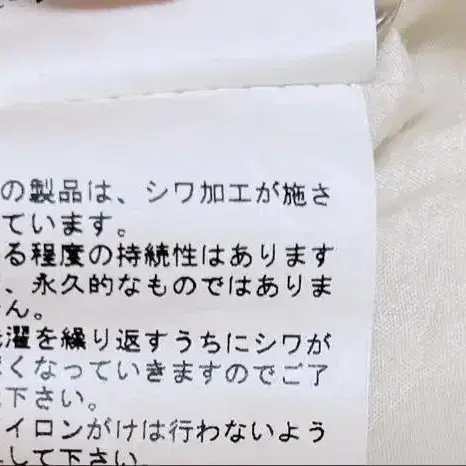 の製品は、シワ加工が施さ
ています。
る程度の持続性はあります
、永久的なものではありま
ん。
濯を繰り返すうちにシワが
くなっていきますのでご了
下さい。
イロンがけは行わないよう
して下さい。